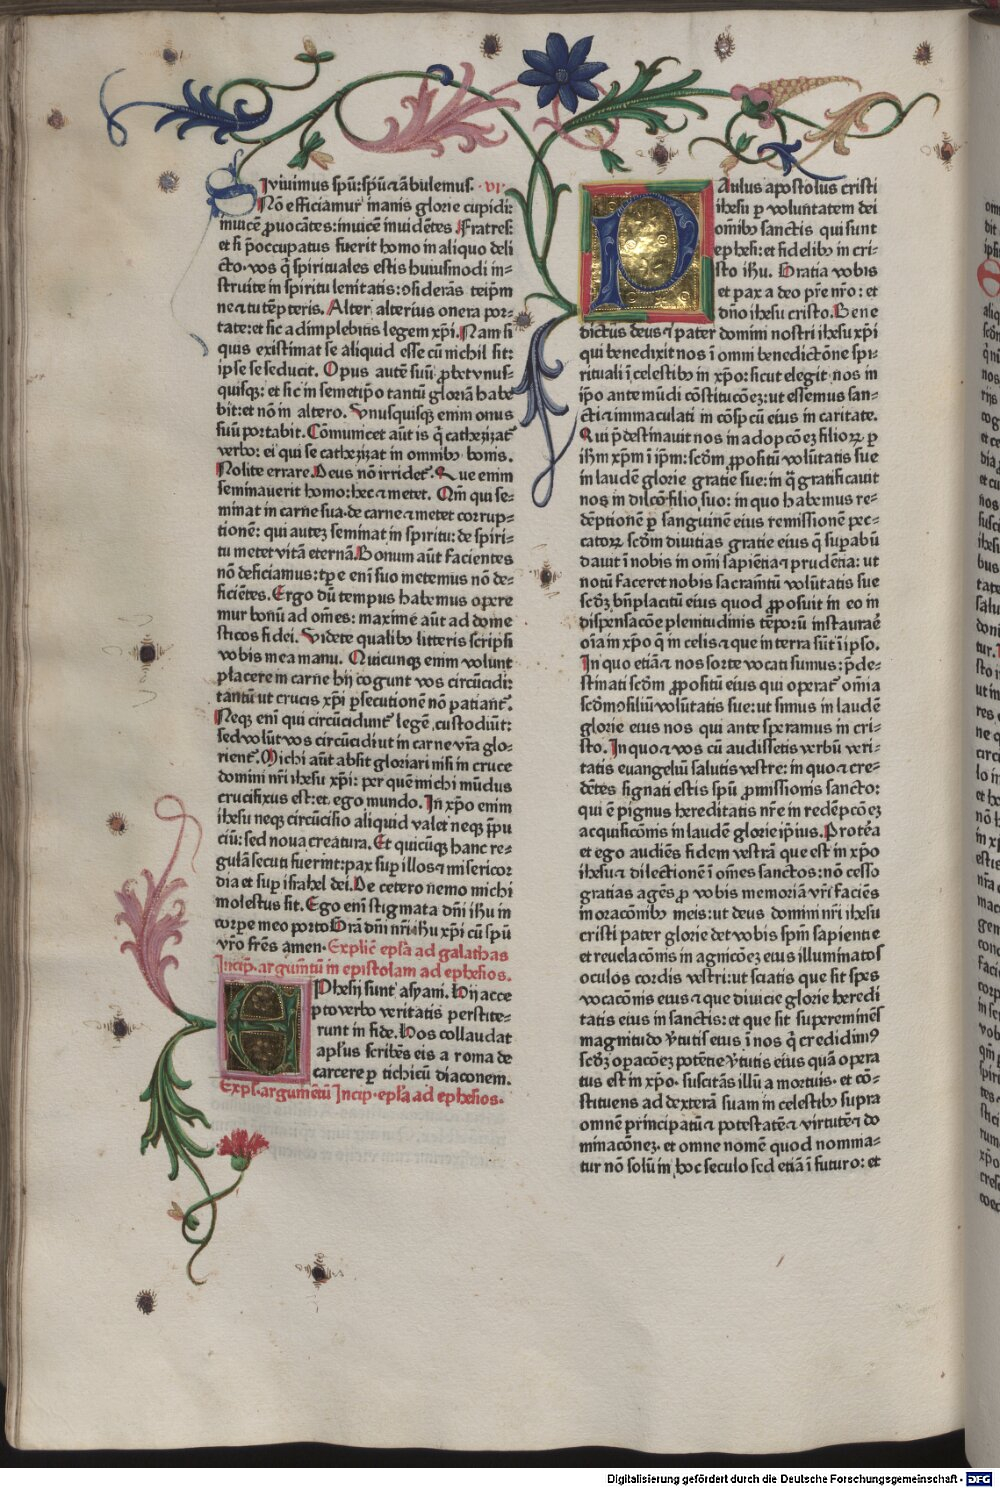 Si viuimus spū: spū ⁊ ābulemus. ·VI·
Nō efficiamur inanis glorie cupidi:
inuicē ꝓuocātes: inuicē inuidētes. Fratres:
et si p̄occupatus fuerit homo in aliquo deli
cto· vos q̄ spirituales estis huiusmodi in⸗
struite in spiritu lenitatis: ꝯsiderās teip̄m
ne ⁊ tu tēpteris. Alter alterius onera por⸗
tate: et sic adimplebitis legem xp̄i. Nam si
quis existimat se aliquid esse cū nichil sit:
ipse se seducit. Opus autē suū ꝓbet vnus⸗
quisqꝫ: et sic in semetip̄o tantū gloriā habe
bit: et nō in altero. Vnusquisqꝫ enim onus
suū portabit. Cōmunicet aūt is q̄ cathezizat᷑
verbo: ei qui se cathezizat in omnibꝫ bonis.
Nolite errare. Deus nō irridet᷑. Que enim
seminauerit homo: hec ⁊ metet. Qm̄ qui se⸗
minat in carne sua· de carne ⁊ metet corrup⸗
tionē: qui auteꝫ seminat in spiritu: de spiri⸗
tu metet vitā eternā. Bonum aūt facientes
nō deficiamus: tp̄e eni̅ suo metemus nō de⸗
ficiētes. Ergo dū tempus habemus opere
mur bonū ad om̄es: maxime aūt ad dome
sticos fidei. Videte qualibꝫ litteris scripsi
vobis mea manu. Quicunqꝫ enim volunt
placere in carne hij cogunt vos circūcidi:
tantū ut crucis xp̄i ꝑsecutionē nō patiant᷑.
Neqꝫ eni̅ qui circūcidunt᷑ legē custodiūt:
sed volūt vos circūcidi ut in carne vr̄a glo⸗
rient᷑. Michi aūt absit gloriari nisi in cruce
domini nr̄i ihesu xp̄i: per quē michi mūdus
crucifixus est: et ego mundo. In xp̄o enim
ihesu neqꝫ circūcisio aliquid valet neqꝫ p̄pu
ciū: sed noua creatura. Et quicūqꝫ hanc re⸗
gulā secuti fuerint: pax suꝑ illos ⁊ misericor
dia et suꝑ israhel dei. De cetero nemo michi
molestus sit. Ego eni̅ stigmata dn̄i ihu̅ in
corpe meo porto. Grā dn̄i nr̄i ihu̅ xp̄i cū spū
vr̄o frēs amen. Explic̄ epl̄a ad galathas
Incip̄. argum̄tū in epistolam ad ephesios.
Ephesij sunt asyani. Hij acce
pto verbo veritatis perstite⸗
runt in fide. Hos collaudat
apl̄us scribēs eis a roma de
carcere ꝑ tichicū diaconem.
Expl̄. argumētū Incip. epl̄a ad ephesios.
Paulus apostolus cristi
ihesu ꝑ voluntatem dei
om̄ibꝫ sanctis qui sunt
ephesi: et fidelibꝫ in cri⸗
sto ihu̅. Gratia vobis
et pax a deo pr̄e nr̄o: et
dn̄o ihesu cristo. Bene
dictus deus et pater domini nostri ihesu xp̄i
qui benedixit nos ī omni benedictōne spi⸗
rituali ī celestibꝫ in xp̄o: sicut elegit nos in
ip̄o ante mūdi cōstitucōeꝫ: ut essemus san⸗
cti ⁊ immaculati in cōsp̄cū eius in caritate.
Qui p̄destinauit nos in adopcōeꝫ filioꝝ ꝑ
ih̄m xp̄m ī ip̄m: scd̄m ꝓpositū volūtatis sue
in laudē glorie gratie sue: in q̄ gratificauit
nos in dilcō filio suo: in quo habemus re⸗
dēptionē ꝑ sanguinē eius remissionē pec⸗
catoꝝ scd̄m diuitias gratie eius q̄ suꝑabū
dauit ī nobis in om̄i sapiētia ⁊ prudētia: ut
notū faceret nobis sacram̄tū volūtatis sue
scd̄ꝫ bn̄placitū eius quod ꝓposuit in eo in
dispensacōe plenitudinis tēporū instaurae̅
oi̅a in xp̄o q̄ in celis ⁊ que in terra sūt ī ip̄so.
In quo etiā ⁊ nos sorte vocati sumus: p̄de⸗
stinati scd̄m ꝓpositū eius qui operat᷑ om̄ia
scd̄m ꝯsiliū volūtatis sue: ut simus in laudē
glorie eius nos qui ante speramus in cri⸗
sto. In quo ⁊ vos cū audissetis verbū veri⸗
tatis euangeliū salutis vestre: in quo ⁊ cre⸗
dētes signati estis spū ꝓmissionis sancto:
qui ē pignus hereditatis nr̄e in redēpcōeꝫ
acquisicōnis in laudē glorie ip̄ius. Proteā
et ego audiēs fidem vestrā que est in xp̄o
ihesu ⁊ dilectionē ī om̄es sanctos: nō cesso
gratias agēs ꝓ vobis memoriā vr̄i faciēs
in oracōnibꝫ meis: ut deus domini nr̄i ihesu
cristi pater glorie det vobis spm̄ sapientie
et reuelacōnis in agnicōeꝫ eius illuminatos
oculos cordis vestri: ut sciatis que sit spes
vocacōnis eius ⁊ que diuicie glorie heredi
tatis eius in sanctis: et que sit supereminēs
magnitudo v̄tutis eius ī nos q̄ credidimꝰ
scd̄ꝫ opacōeꝫ potētie v̄tutis eius quā opera
tus est in xp̄o· suscitās illū a mortuis· et cō⸗
stituens ad dexterā suam in celestibꝫ supra
omnē principatū ⁊ potestatē ⁊ virtutē ⁊ do
minacōneꝫ· et omne nomē quod nomina⸗
tur nō solū in hoc seculo sed etiā ī futuro: et
Digitalisierung gefördert durch die Deutsche Forschungsgemeinschaft - DFG